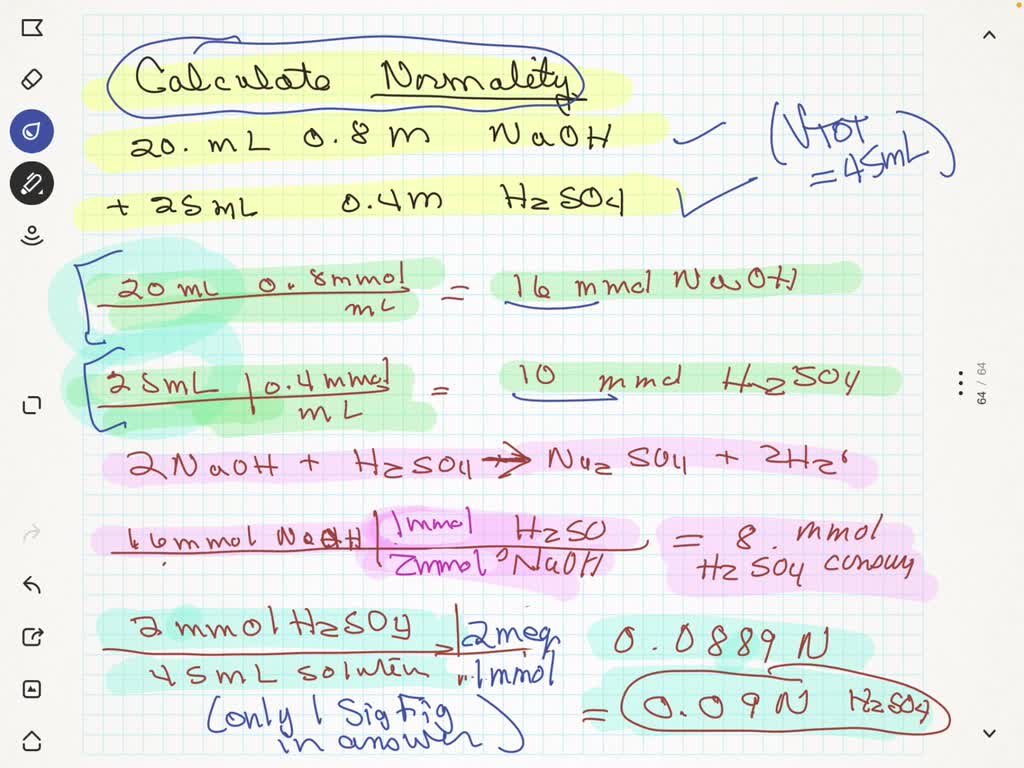 Calculate Normality
20. mL 0.8 m NaOH
(VTOT = 45mL)
+ 25 mL 0.4 m H2SO4
20 mL 0.8 mmol / mL = 16 mmol NaOH
25mL | 0.4 mmol / mL = 10 mmol H2SO4
2NaOH + H2SO4 → Na2SO4 + 2H2
16 mmol NaOH | 1mmol H2SO / 2mmol NaOH = 8. mmol
H2SO4
2 mmol H2SO4 | 2meq 0.0889 N
45mL solution | 1mmol
(only 1 Sig Fig in answer) = 0.09N H2SO4
64 / 64